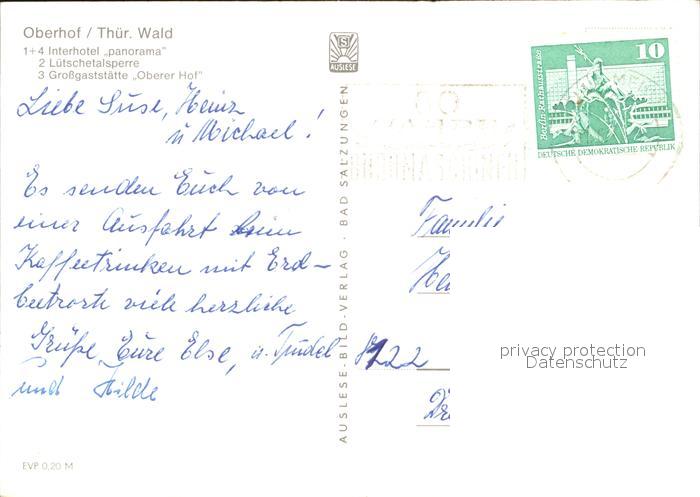 Oberhof / Thür. Wald
1+4 Interhotel „panorama"
2 Lütschetalsperre
3 Großgaststätte „Oberer Hof"
Liebe Suse, Heinz
u Michael!
Es senden Euch von
einer Ausfahrt beim
Kaffeetrinken mit Erd-
beertorte viele herzliche
Grüße, Eure Else, u. Trudel
und Hilde
EVP 0,20 M
AUSLESE
AUSLESE-BILD-VERLAG · BAD SALZUNGEN
10
Berlin Rathausstraße
DEUTSCHE DEMOKRATISCHE REPUBLIK
Familie
privacy protection
Datenschutz